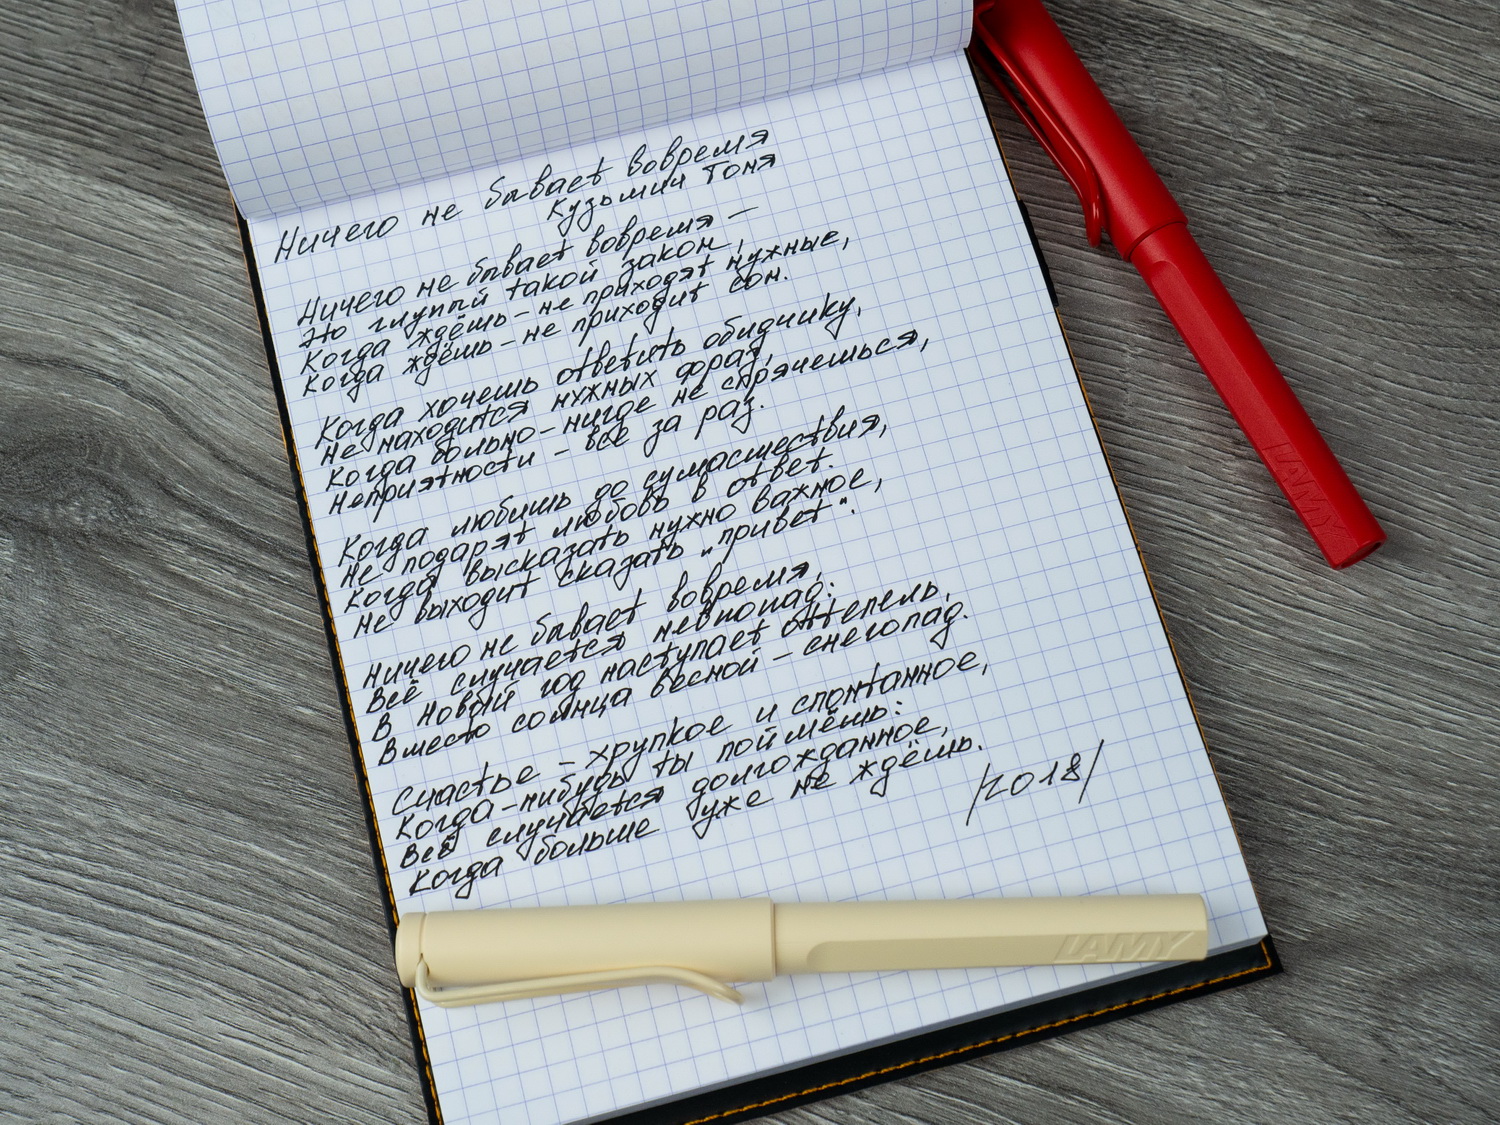 Ничего не бывает вовремя
Кузьмич Тоня
Ничего не бывает вовремя —
Это глупый такой закон,
Когда ждёшь – не приходят нужные,
Когда ждёшь – не приходит сон.
Когда хочешь ответить обидчику,
Не находится нужных фраз,
Когда больно – нигде не спрячешься,
Неприятности – все за раз.
Когда любишь до сумасшествия,
Не подарят любовь в ответ.
Когда высказать нужно важное,
Не выходит сказать „привет".
Ничего не бывает вовремя,
Всё случается невпопад:
В Новый год наступает оттепель,
Вместо солнца весной – снегопад.
Счастье – хрупкое и спонтанное,
Когда-нибудь ты поймёшь:
Всё случается долгожданное,
Когда больше уже не ждёшь.
/2018/
LAMY
LAMY